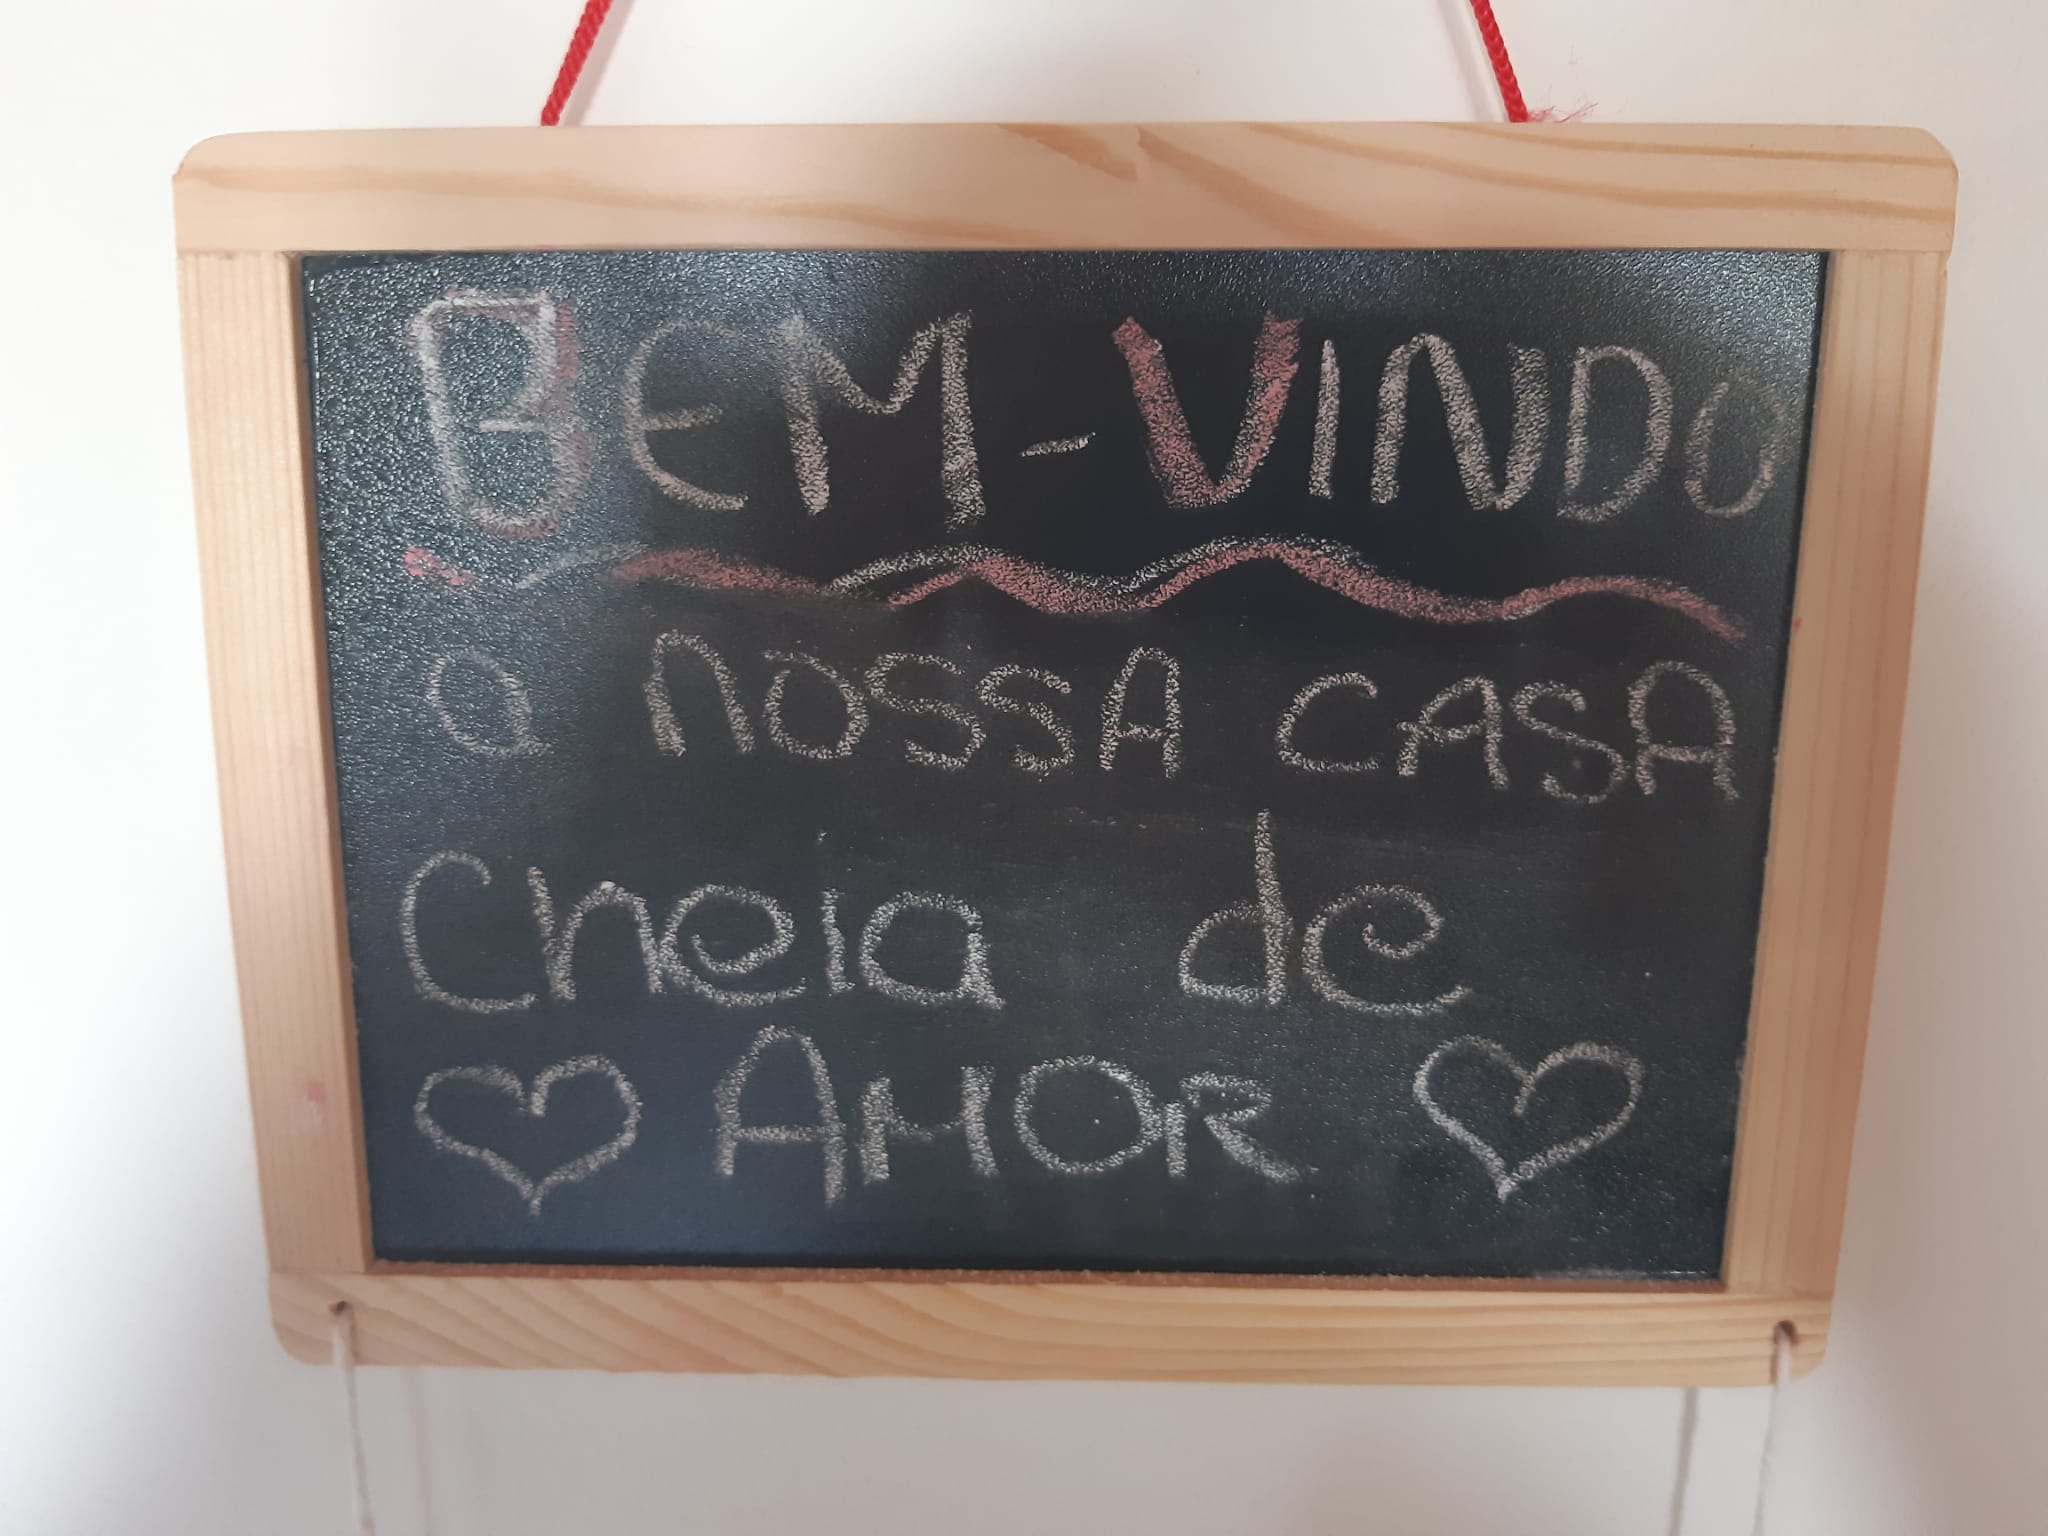 BEM-VINDO
a NOSSA CASA
Cheia de
♡ AMOR ♡